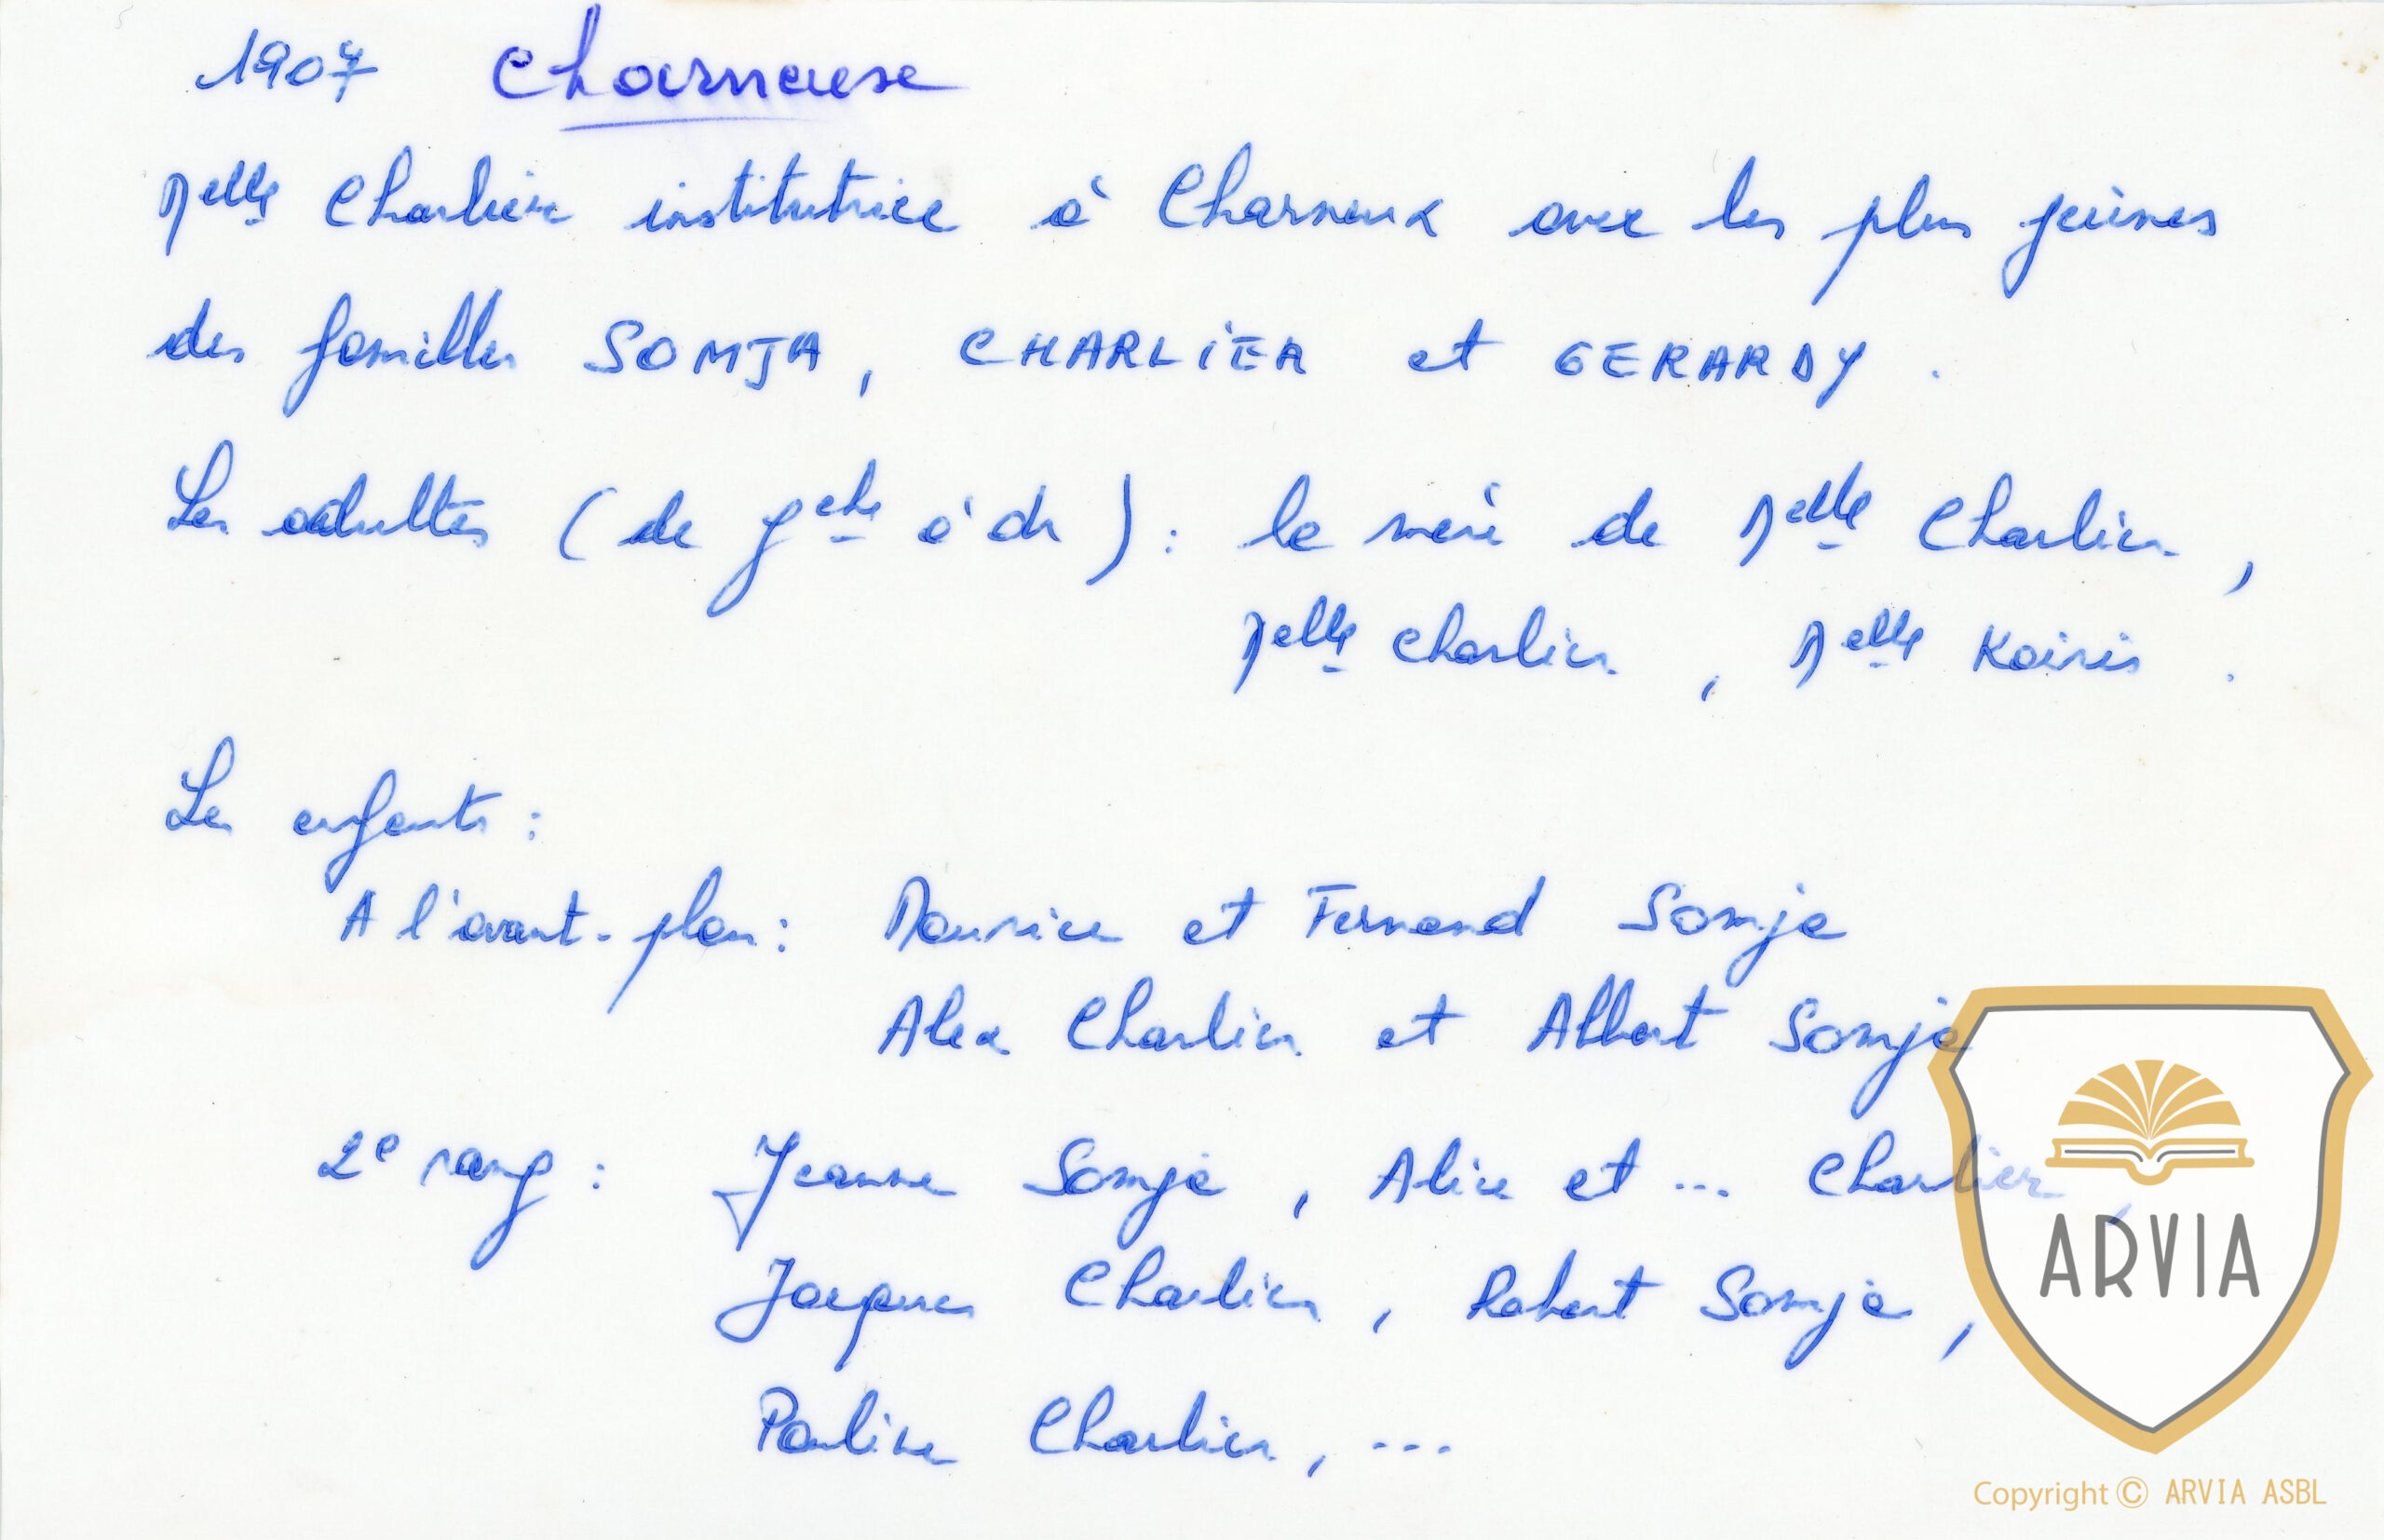 1907 Charneuse
Melle Charlier institutrice à Charneux avec les plus jeunes
des familles SOMJA, CHARLIER et GERARDY.
Les adultes (de gche à dr) : la mère de Melle Charlier,
Melle Charlier, Melle Kairis.
Les enfants :
A l'avant-plan : Maurice et Fernand Somja
Alex Charlier et Albert Somja
2e rang : Jeanne Somja, Alice et ... Charlier,
Jacques Charlier, Robert Somja,
Pauline Charlier, ...
ARVIA
Copyright © ARVIA ASBL